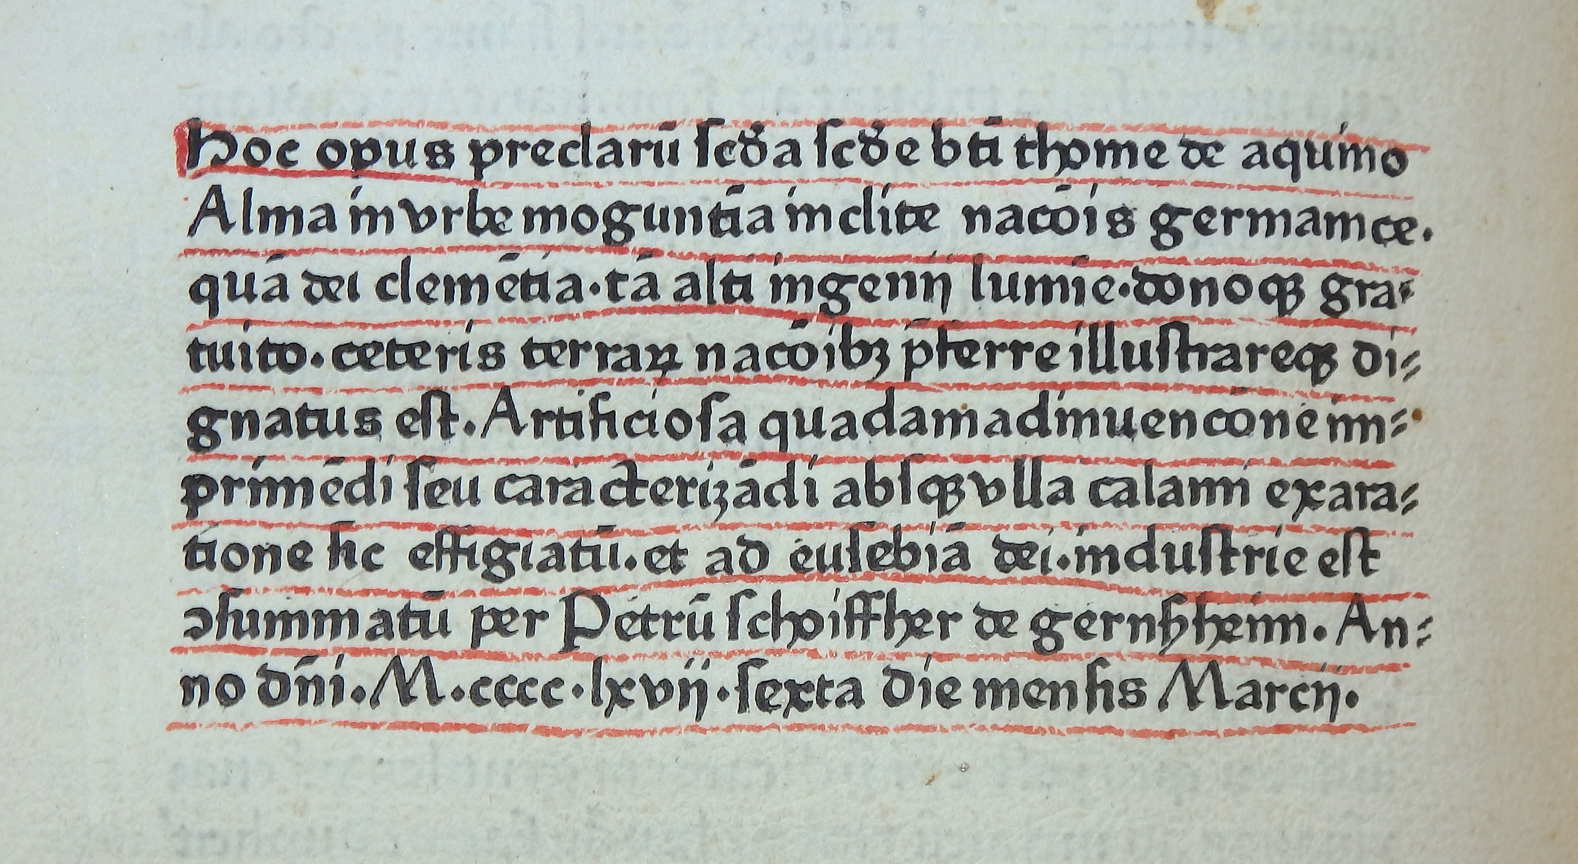 Hoc opus preclarū scd̄a scd̄e btī thome de aquino
Alma in vrbe moguntīa inclite nacōis germanice.
quā dei clemētia·tā alti ingenij lumīe·donoqꝫ gra⸗
tuito·ceteris terraꝝ nacōibꝫ p̄ferre illustrareqꝫ di⸗
gnatus est. Artificiosa quadam adinuencōne im⸗
primēdi seu caracterizādi absqꝫ vlla calami exara⸗
tione sic effigiatū. et ad eusebiā dei·industrie est
ꝯsummatū per Petrū schoiffher de gernsheim. An⸗
no dn̄i·M·cccc·lxvij·sexta die mensis Marcij.